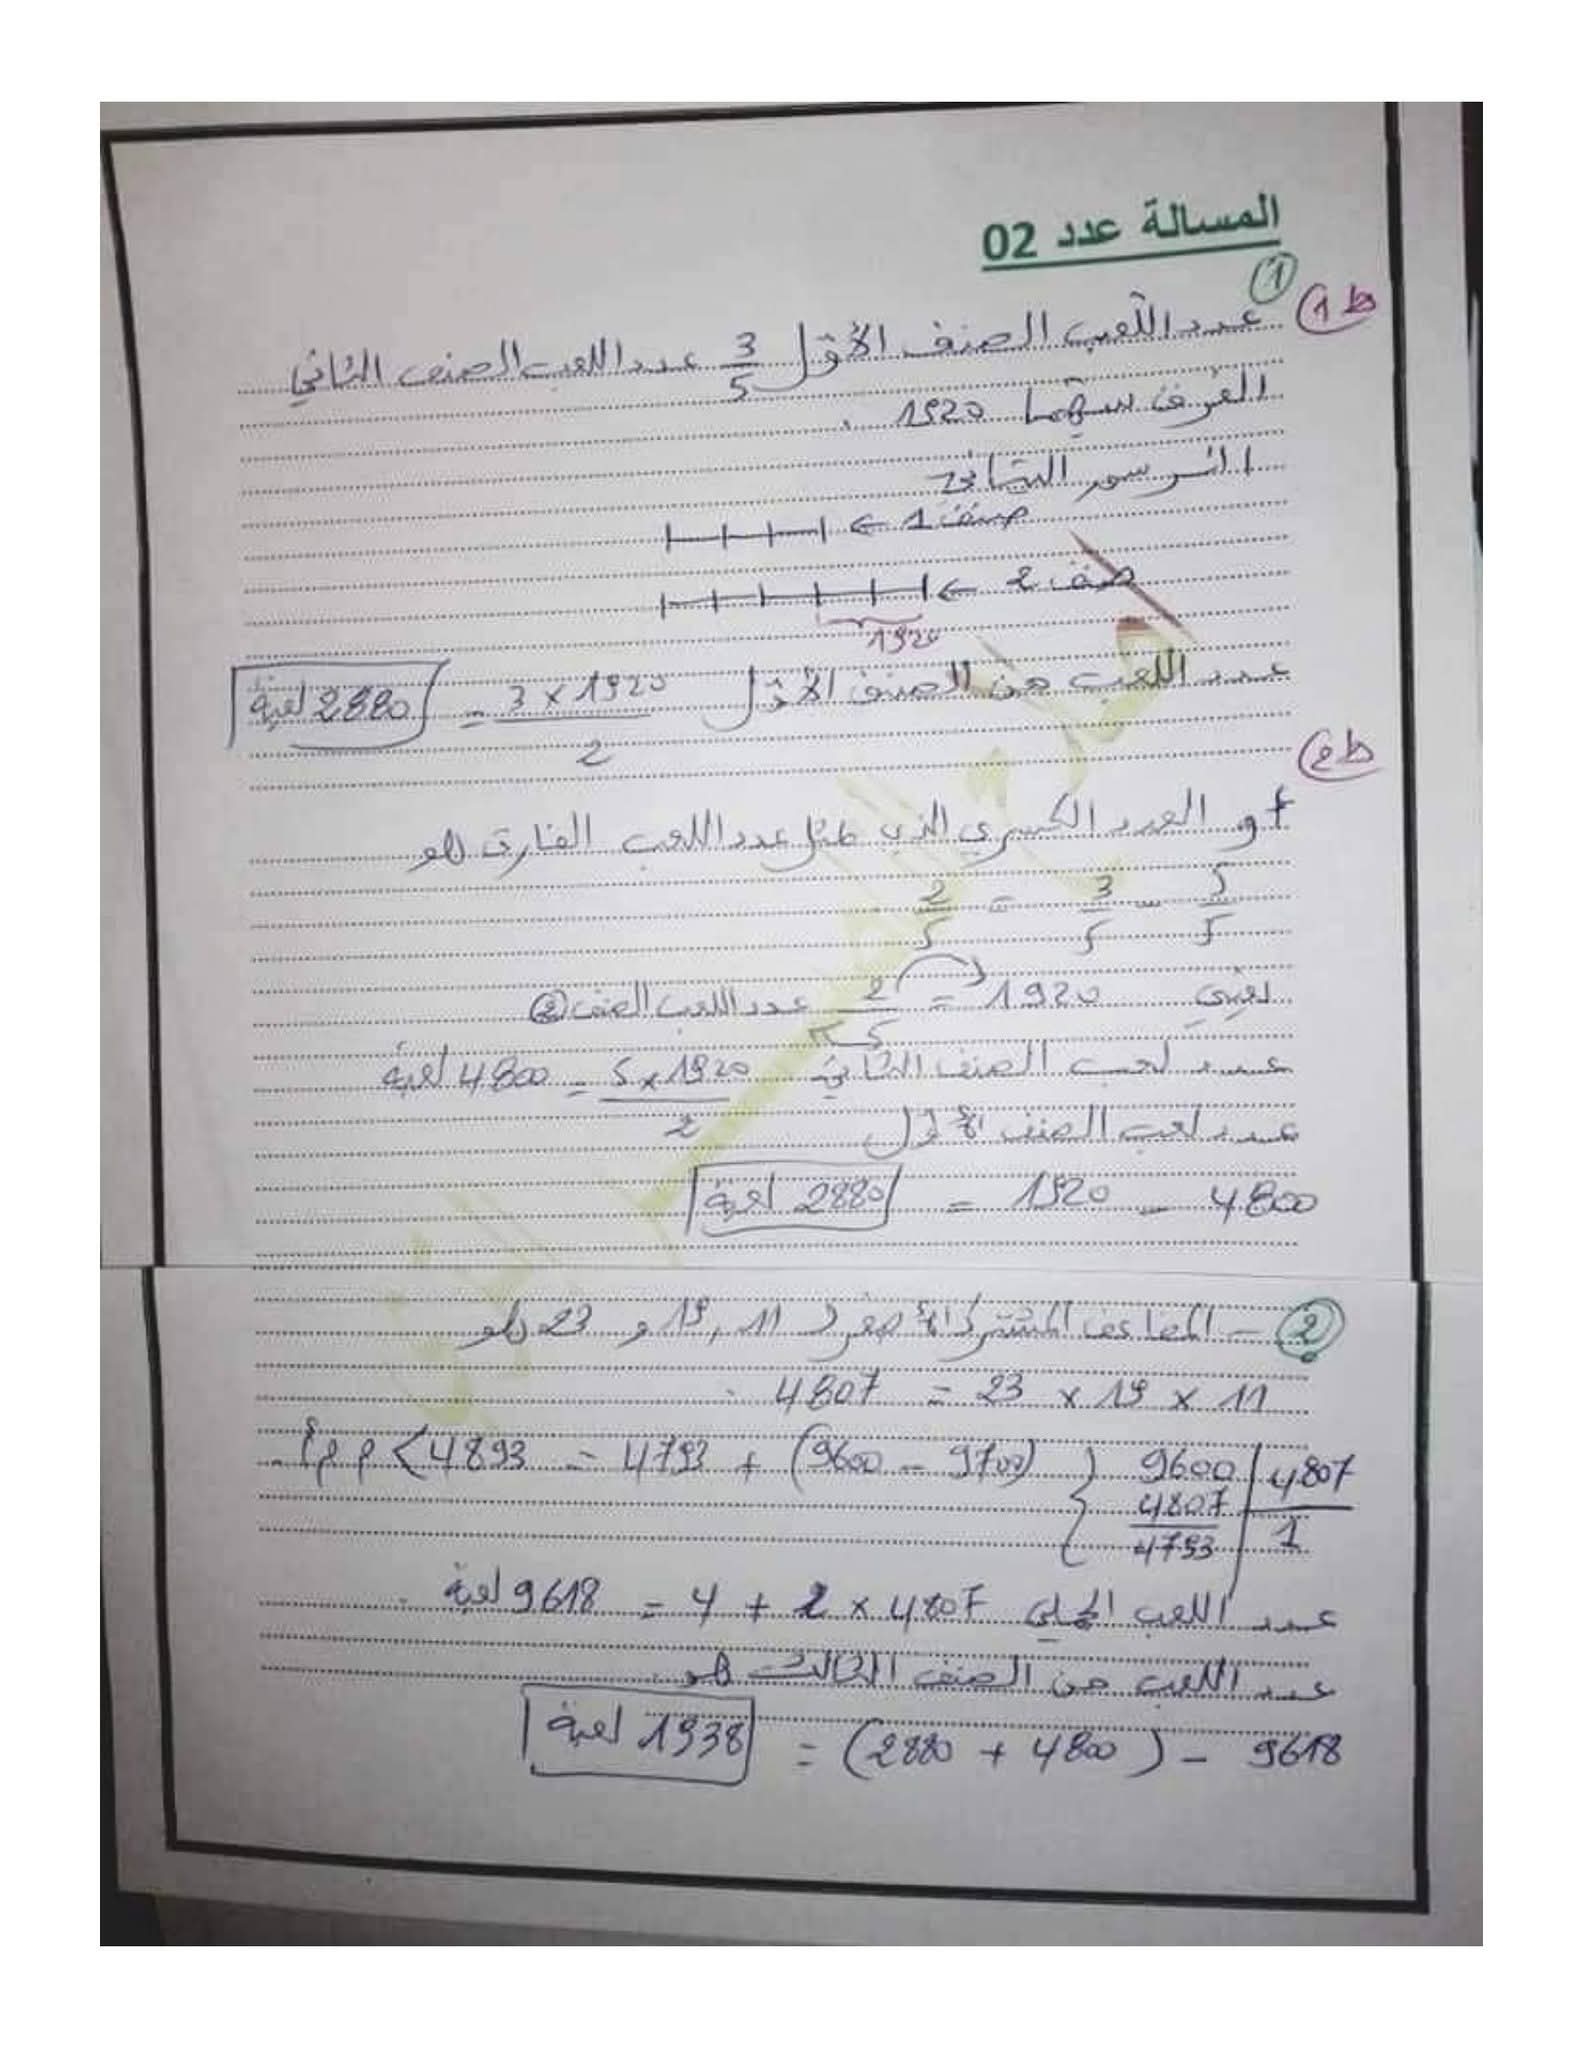 المسالة عدد 02
1
ط1
عدد اللعب الصنف الأوّل 3/5 عدد اللعب الصنف الثاني
الفرق بينهما 1920 .
الرسم البياني
صنف 1 ←
صنف 2 ←
1920
عدد اللعب من الصنف الأوّل 3 x 1920 / 2 = 2880 لعبة
ط2
العدد الكسري الذي يمثل عدد اللعب الفارق هو
5/5 - 3/5 = 2/5
يعني 1920 = 2/5 عدد اللعب الصنف 2
عدد لعب الصنف الثاني 5 x 1920 / 2 = 4800 لعبة
عدد لعب الصنف الأول
4800 - 1920 = 2880 لعبة
2 - المضاعف المشترك الأصغر لـ 11 , 19 و 23 هو
11 x 19 x 23 = 4807 .
9600 | 4807
4807 | 1
4793
(9700 - 9600) + 4793 = 4893 > م م أ .
عدد اللعب الجملي 4807 x 2 + 4 = 9618 لعبة .
عدد اللعب من الصنف الثالث هو
9618 - (4800 + 2880) = 1938 لعبة